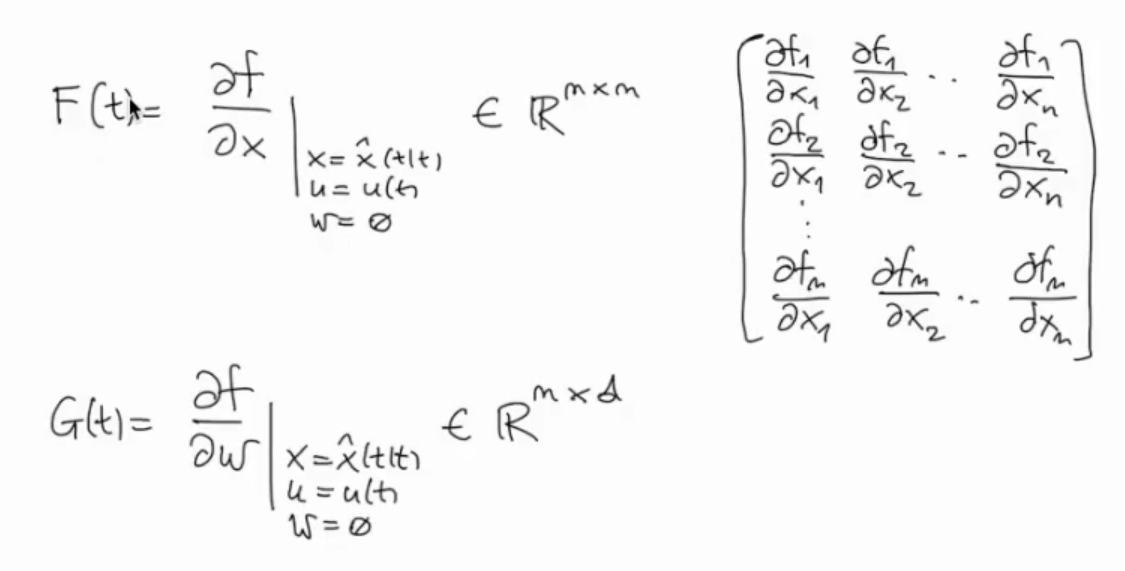 F(t)= ∂f/∂x | x= x̂(t|t) u= u(t) w= ∅ ∈ ℝ^{n×n}
[∂f₁/∂x₁ ∂f₁/∂x₂ ·· ∂f₁/∂xₙ
∂f₂/∂x₁ ∂f₂/∂x₂ ·· ∂f₂/∂xₙ
⋮
∂fₙ/∂x₁ ∂fₙ/∂x₂ ·· ∂fₙ/∂xₙ]
G(t)= ∂f/∂w | x= x̂(t|t) u= u(t) w= ∅ ∈ ℝ^{n×d}